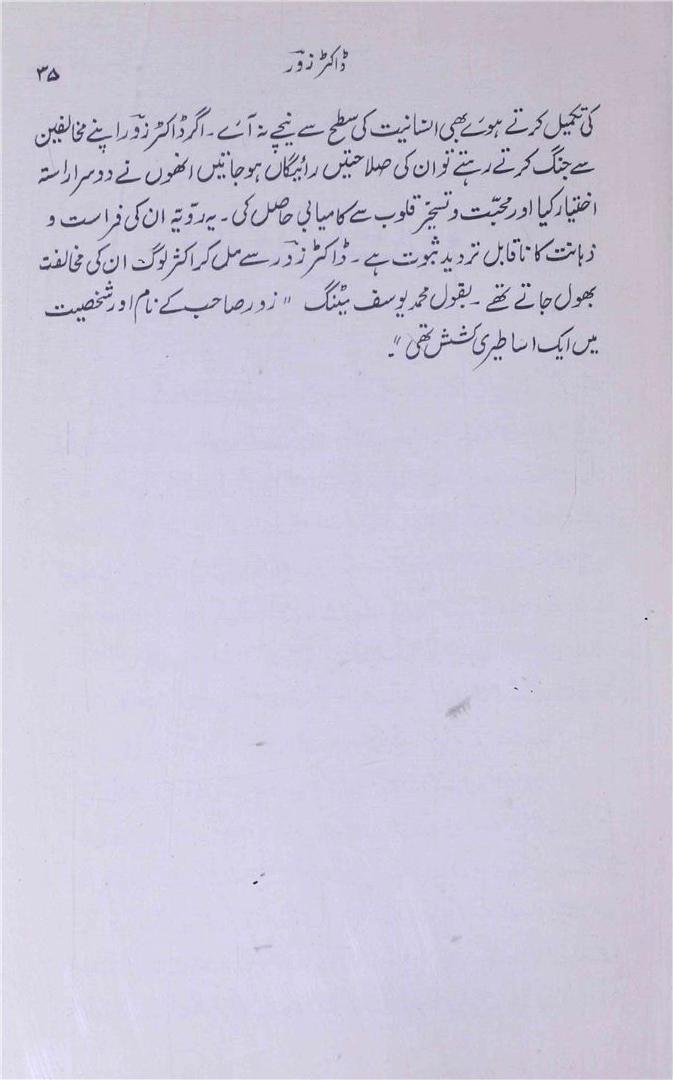 ڈاکٹر زورؔ
۳۵
کی تکمیل کرتے ہوئے بھی انسانیت کی سطح سے نیچے نہ آئے۔ اگر ڈاکٹر زورؔ اپنے مخالفین
سے جنگ کرتے رہتے تو ان کی صلاحتیں رائیگاں ہو جاتیں انھوں نے دوسرا راستہ
اختیار کیا اور محبّت و تسخیر قلوب سے کامیابی حاصل کی۔ یہ روّیہ ان کی فراست و
ذہانت کا ناقابل تردید ثبوت ہے۔ ڈاکٹر زورؔ سے مل کر اکثر لوگ ان کی مخالفت
بھول جاتے تھے۔ بقول محمد یوسف ٹینگ "زور صاحب کے نام اور شخصیت
میں ایک اساطیری کشش تھی"۔